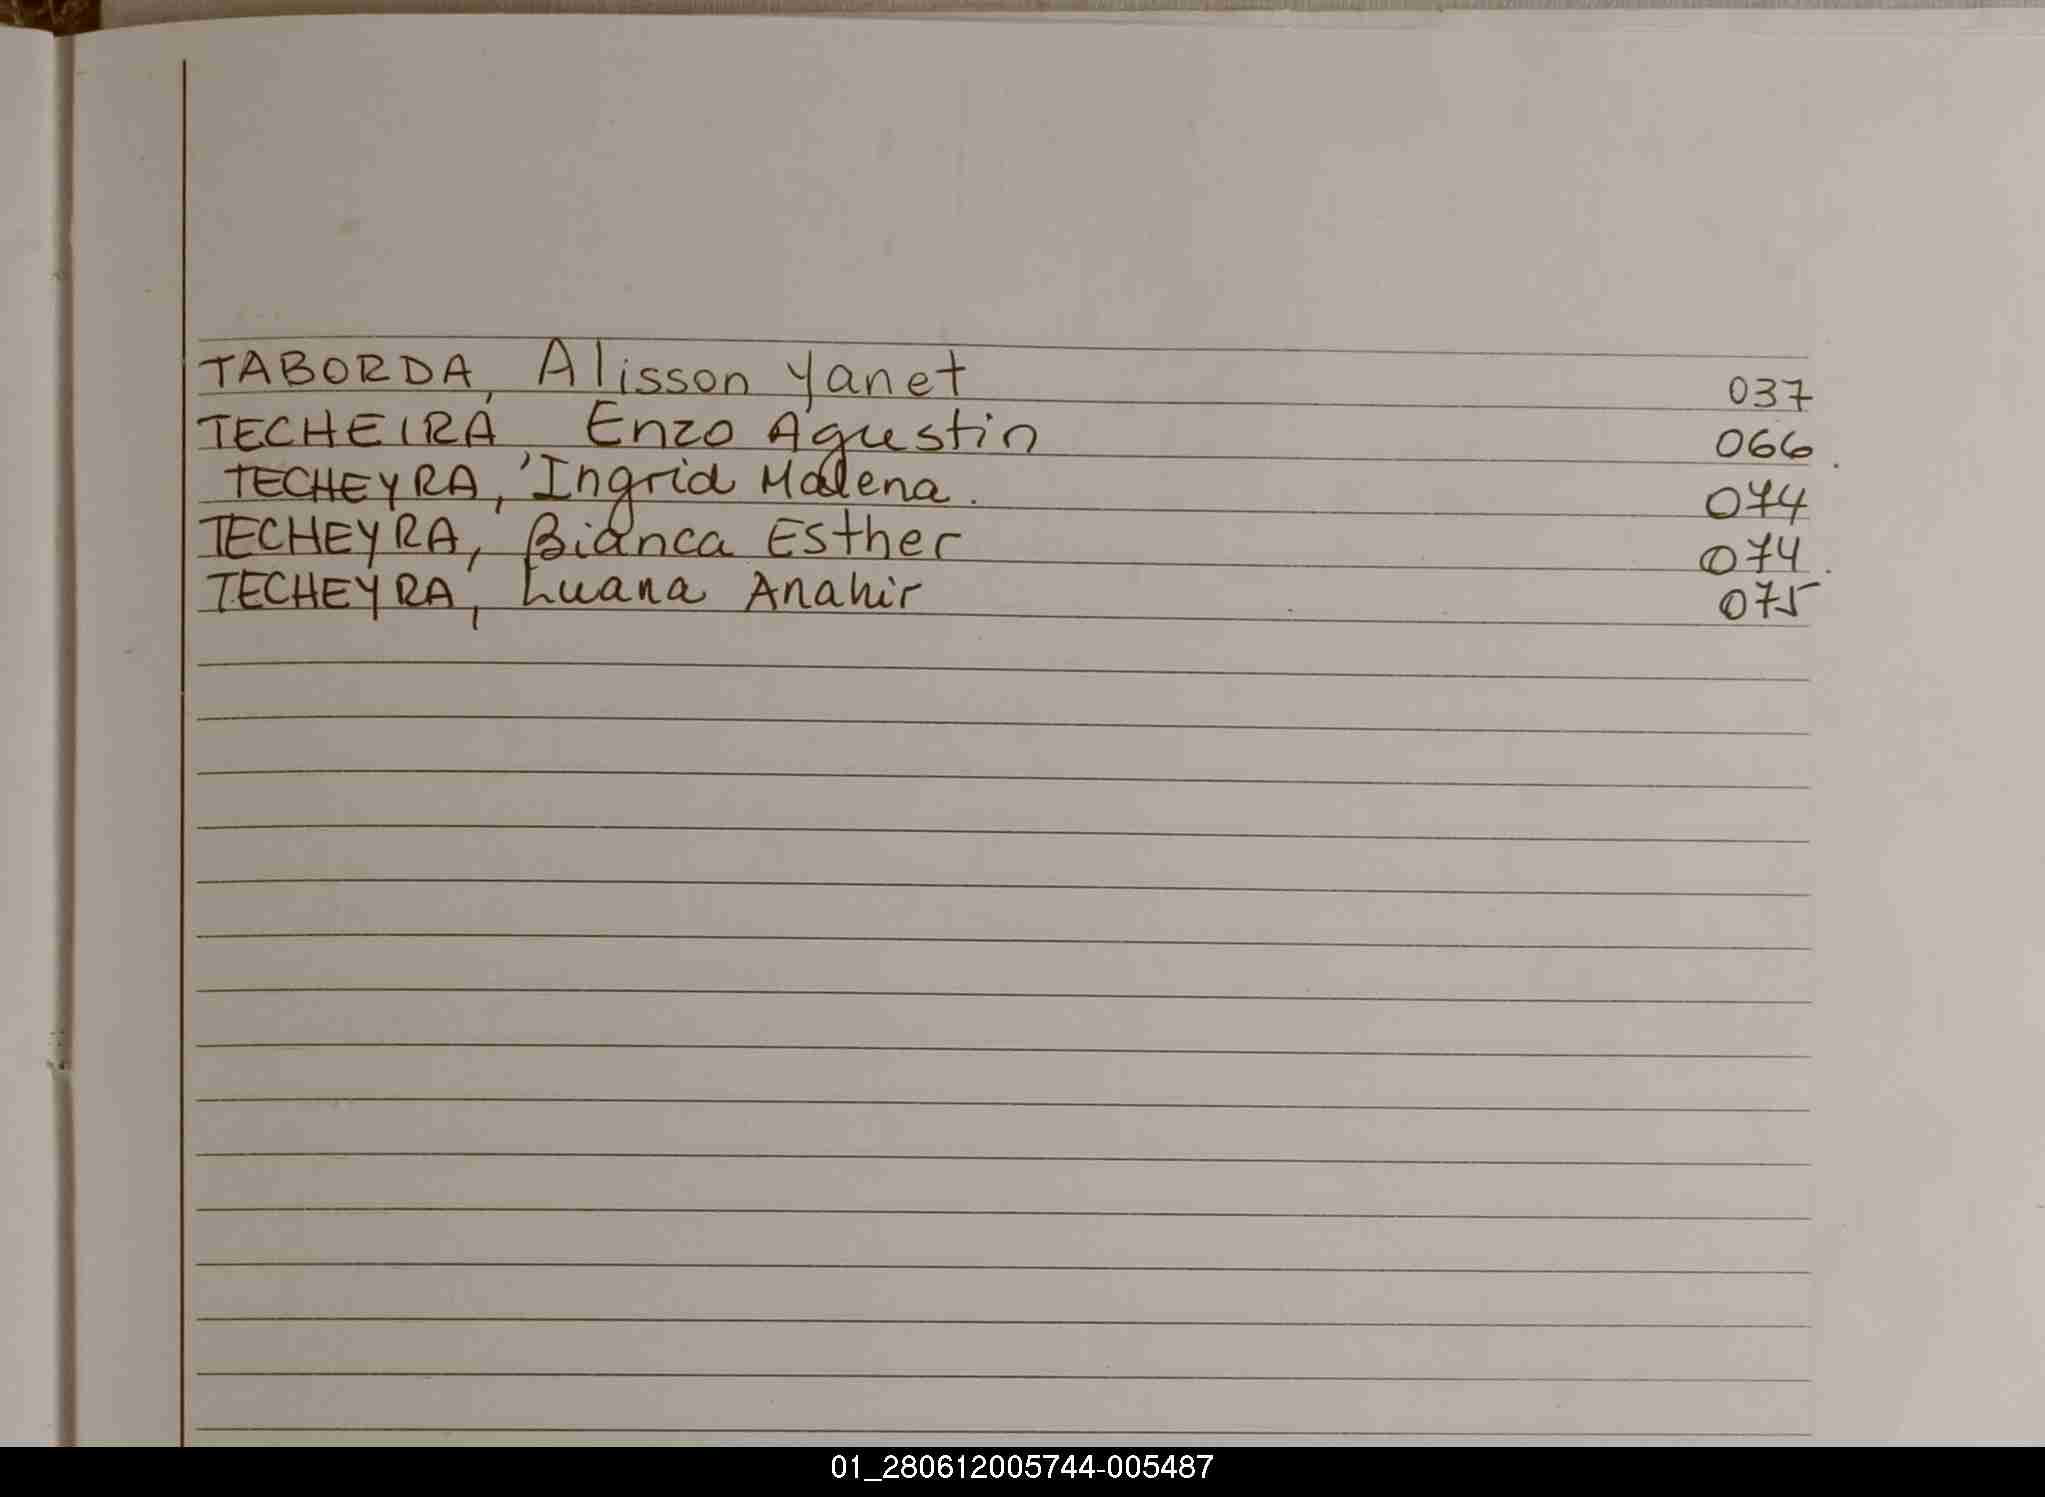 TABORDA, Alisson Yanet 037
TECHEIRA Enzo Agustin 066.
TECHEYRA, Ingrid Malena. 074
TECHEYRA, Bianca Esther 074.
TECHEYRA, Luana Anahir 075
01_280612005744-005487